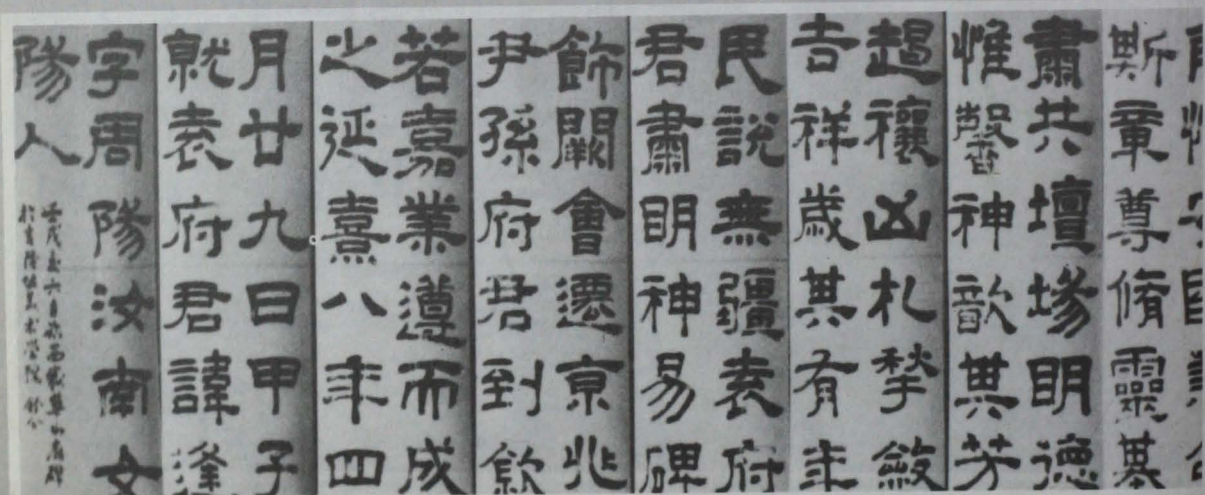 斯章尊脩靈基
肅共壇場明德
惟馨神歆其芳
遏禳凶札揫斂
吉祥歲其有年
民說無疆袁府
君肅明神易碑
飾闕會遷京兆
尹孫府君到欽
若嘉業遵而成
之延熹八年四
月廿九日甲子
就袁府君諱逢
字周陽汝南女
陽人
壬戌夏六月臨西嶽華山廟碑